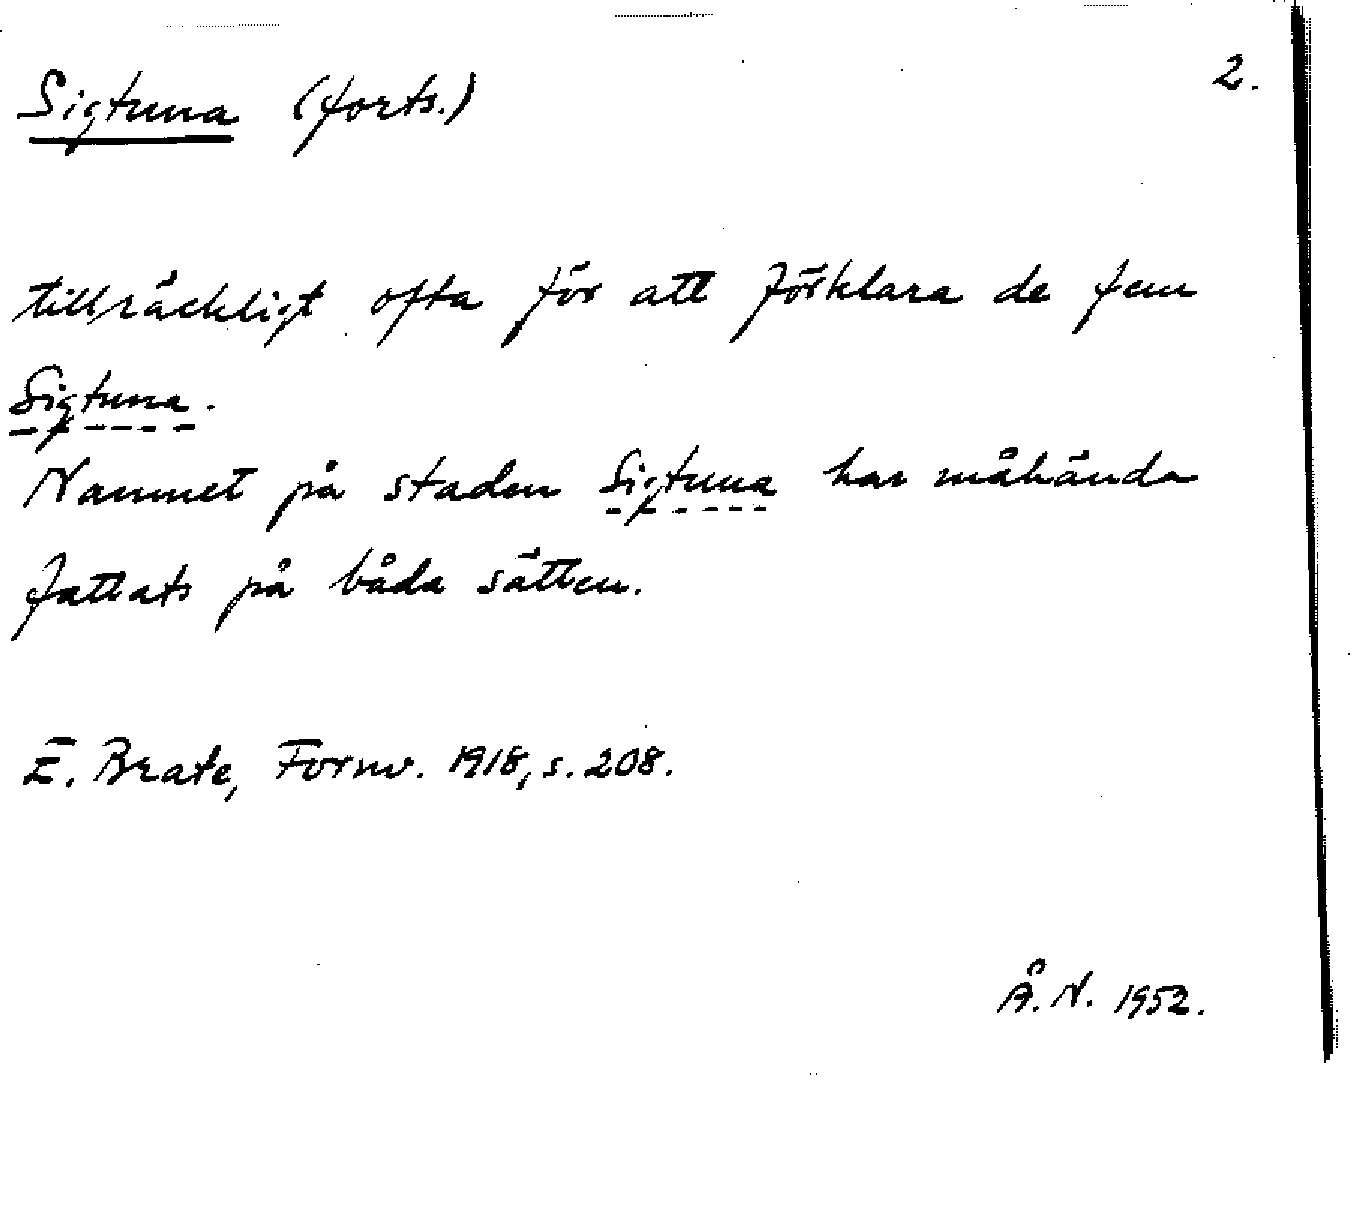 Sigtuna (forts.) 2.
tillräckligt ofta för att förklara de fem
Sigtuna.
Namnet på staden Sigtuna har måhända
fattats på båda sätten.
E. Brate, Fornv. 1918, s. 208.
Å. N. 1952.